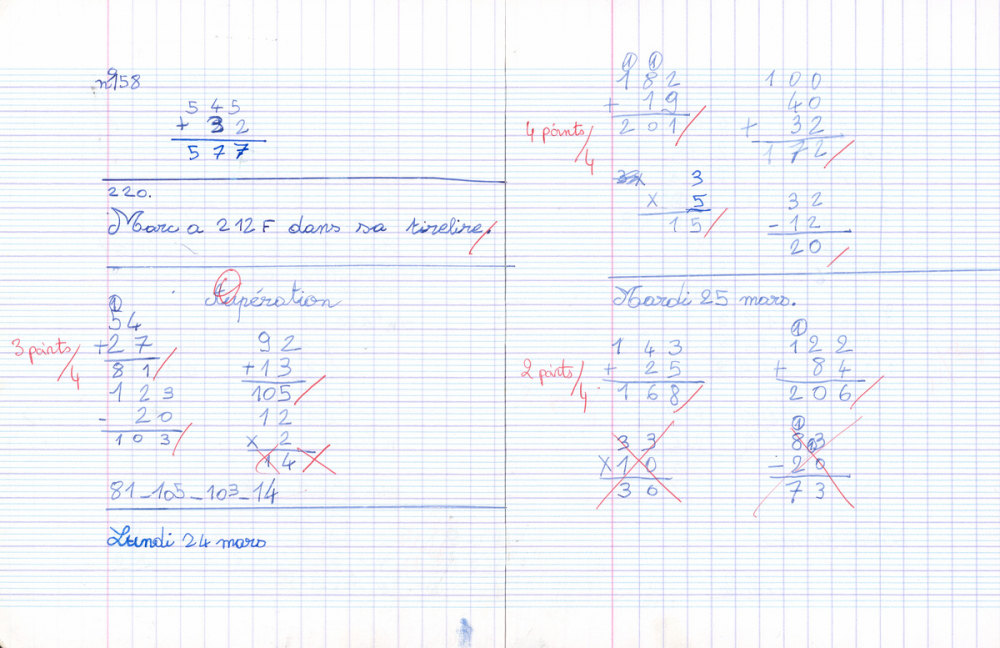 n°158
545
+ 32
577
220.
Marc a 212 F dans sa tirelire.
opération
3 points/4
1
54
+27
81
92
+13
105
123
- 20
103
12
x 2
14
81_105_103_14
Lundi 24 mars
4 points/4
1 1
182
+ 19
201
100
40
+ 32
172
3
x 5
15
32
-12
20
Mardi 25 mars.
2 points/4
143
+ 25
168
1
122
+ 84
206
33
x10
30
1
83
-20
73